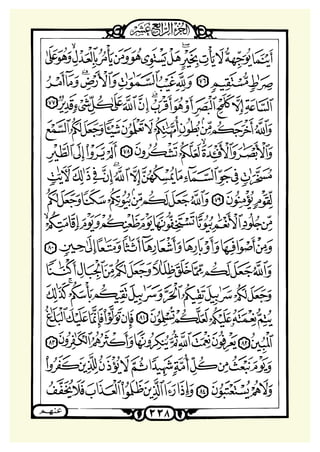 الجزء الرابع عشر
أَيْنَمَا يُوَجِّههُّ لَا يَأْتِ بِخَيْرٍ هَلْ يَسْتَوِى هُوَ وَمَن يَأْمُرُ بِالْعَدْلِ وَهُوَ عَلَىٰ
صِرَٰطٍ مُّسْتَقِيمٍ ٧٦ وَلِلَّهِ غَيْبُ السَّمَٰوَٰتِ وَالْأَرْضِ وَمَا أَمْرُ
السَّاعَةِ إِلَّا كَلَمْحِ الْبَصَرِ أَوْ هُوَ أَقْرَبُ إِنَّ اللَّهَ عَلَىٰ كُلِّ شَىْءٍ قَدِيرٌ ٧٧
وَاللَّهُ أَخْرَجَكُم مِّنۢ بُطُونِ أُمَّهَٰتِكُمْ لَا تَعْلَمُونَ شَيْـًٔا وَجَعَلَ لَكُمُ السَّمْعَ
وَالْأَبْصَٰرَ وَالْأَفْـِٔدَةَ لَعَلَّكُمْ تَشْكُرُونَ ٧٨ أَلَمْ يَرَوْا إِلَى الطَّيْرِ
مُسَخَّرَٰتٍ فِى جَوِّ السَّمَاءِ مَا يُمْسِكُهُنَّ إِلَّا اللَّهُ إِنَّ فِى ذَٰلِكَ لَءَايَٰتٍ
لِّقَوْمٍ يُؤْمِنُونَ ٧٩ وَاللَّهُ جَعَلَ لَكُم مِّنۢ بُيُوتِكُمْ سَكَنًا وَجَعَلَ لَكُم
مِّن جُلُودِ الْأَنْعَٰمِ بُيُوتًا تَسْتَخِفُّونَهَا يَوْمَ ظَعْنِكُمْ وَيَوْمَ إِقَامَتِكُمْ
وَمِنْ أَصْوَافِهَا وَأَوْبَارِهَا وَأَشْعَارِهَا أَثَٰثًا وَمَتَٰعًا إِلَىٰ حِينٍ ٨٠
وَاللَّهُ جَعَلَ لَكُم مِّمَّا خَلَقَ ظِلَٰلًا وَجَعَلَ لَكُم مِّنَ الْجِبَالِ أَكْنَٰنًا
وَجَعَلَ لَكُمْ سَرَٰبِيلَ تَقِيكُمُ الْحَرَّ وَسَرَٰبِيلَ تَقِيكُم بَأْسَكُمْ كَذَٰلِكَ
يُتِمُّ نِعْمَتَهُ عَلَيْكُمْ لَعَلَّكُمْ تُسْلِمُونَ ٨١ فَإِن تَوَلَّوْا فَإِنَّمَا عَلَيْكَ الْبَلَٰغُ
الْمُبِينُ ٨٢ يَعْرِفُونَ نِعْمَتَ اللَّهِ ثُمَّ يُنكِرُونَهَا وَأَكْثَرُهُمُ الْكَٰفِرُونَ ٨٣
وَيَوْمَ نَبْعَثُ مِن كُلِّ أُمَّةٍ شَهِيدًا ثُمَّ لَا يُؤْذَنُ لِلَّذِينَ كَفَرُوا
وَلَا هُمْ يُسْتَعْتَبُونَ ٨٤ وَإِذَا رَءَا الَّذِينَ ظَلَمُوا الْعَذَابَ فَلَا يُخَفَّفُ
٢٢٨
عنهم